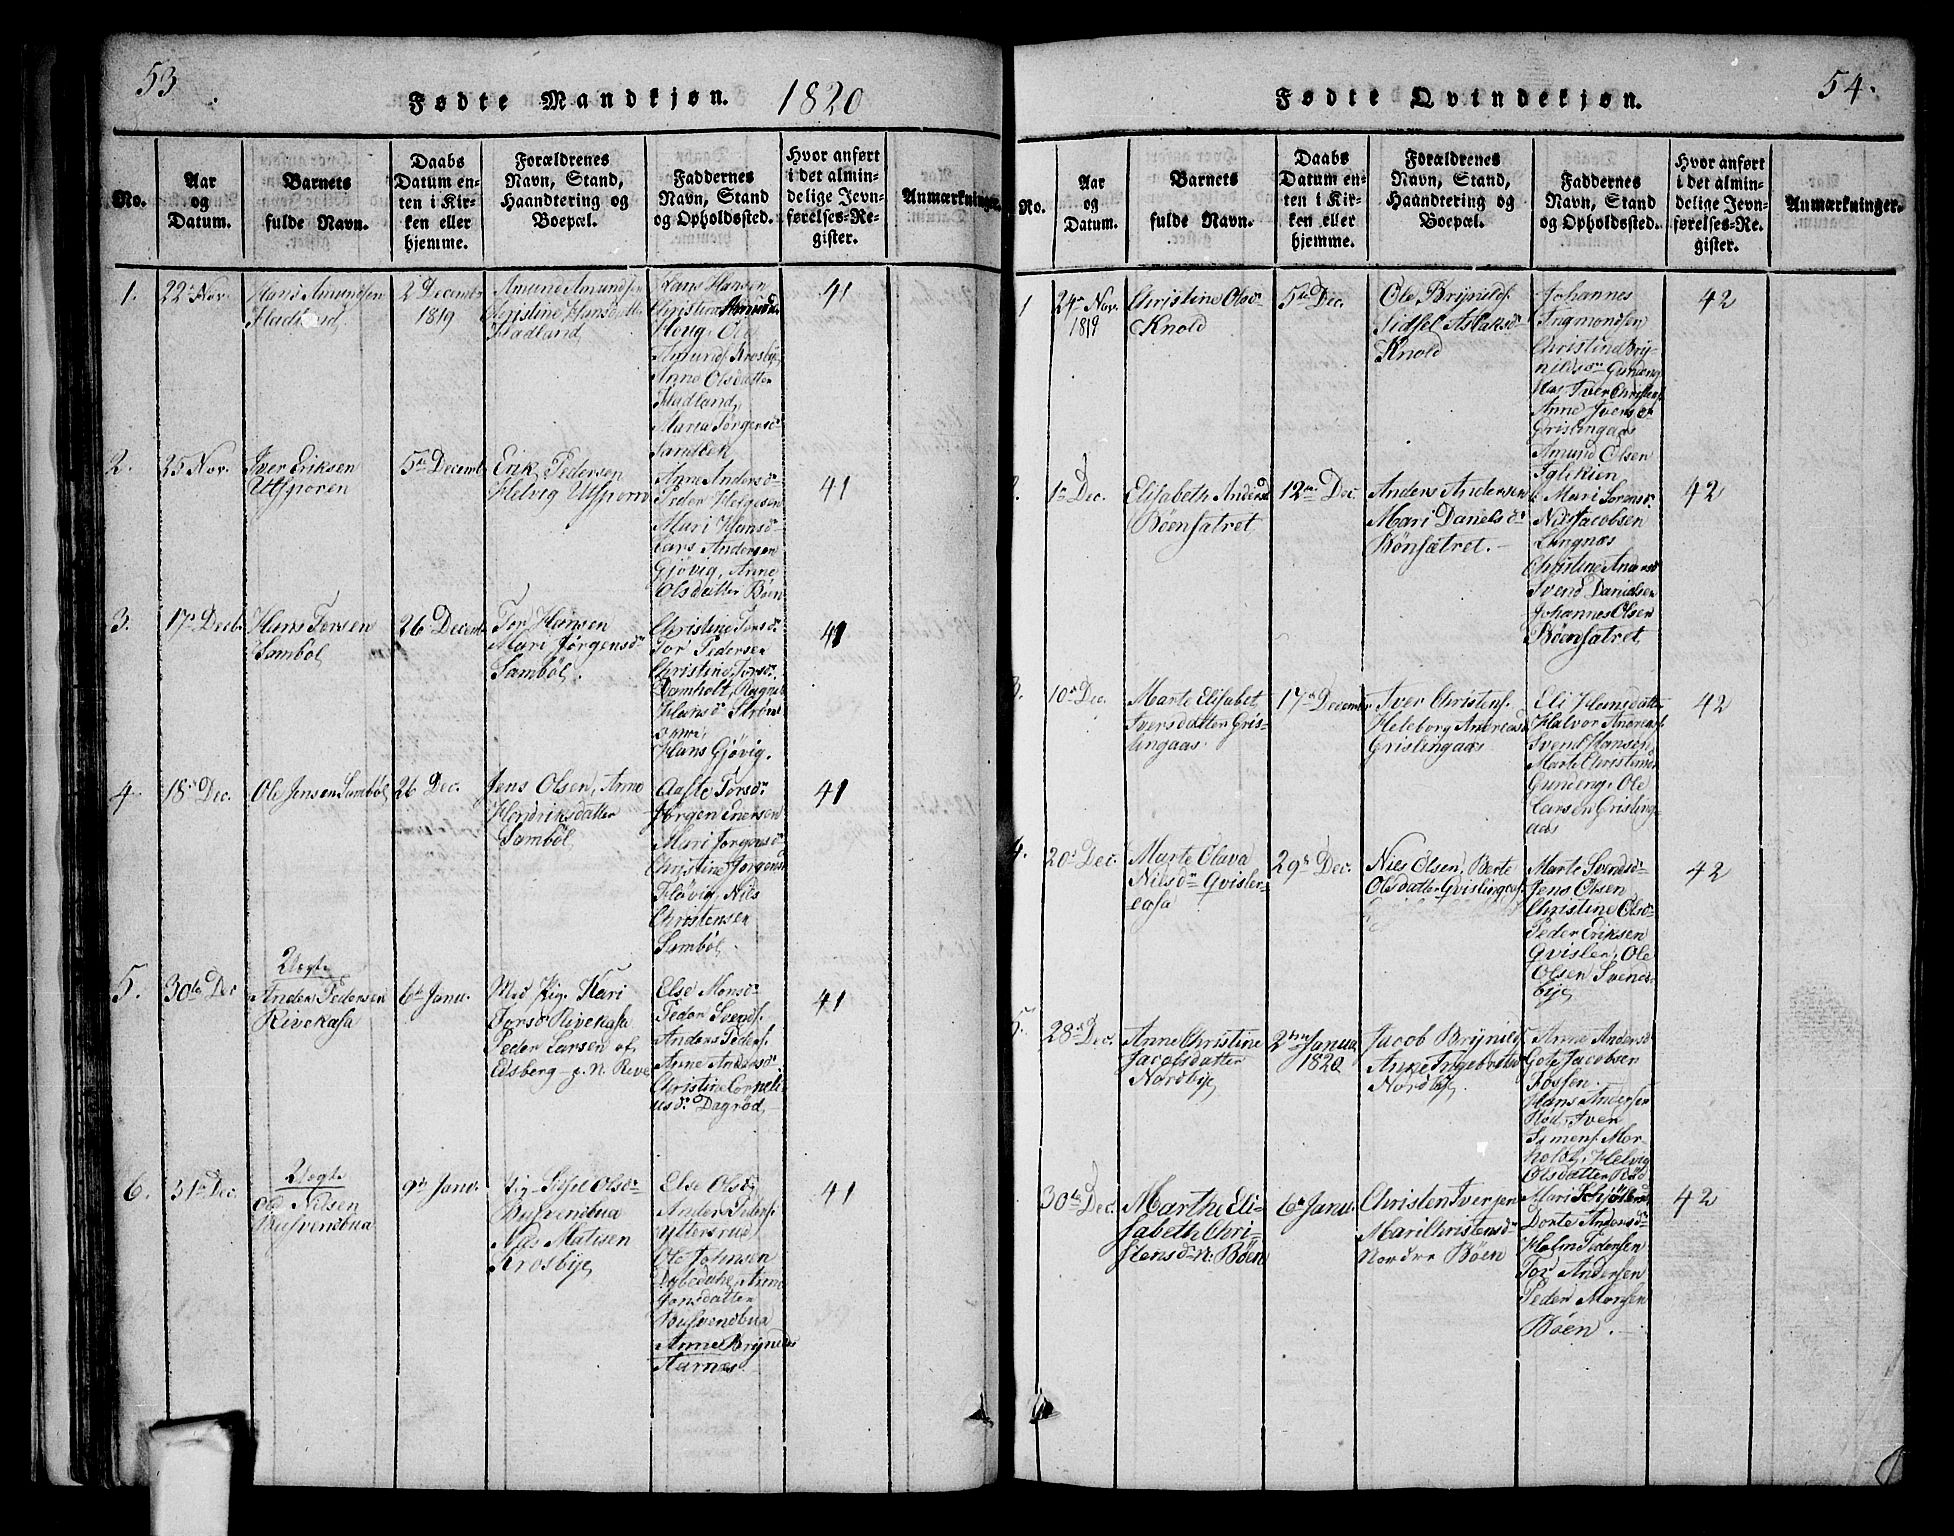 53
Fødte Mandkjøn.
1820
No.
Aar
og
Datum.
Barnets
fulde Navn.
Daabs
Datum en-
ten i Kir-
ken eller
hjemme.
Forældrenes
Navn, Stand,
Haandtering og
Boepæl.
Faddernes
Navn, Stand
og Opholdssted.
Hvor anført
i det almin-
delige Jevn-
førelses-Re-
gister.
Anmærkninger.
1.
22 Nov.
Hans Amundsen
Hadland
2 Decembr
1819
Amund Amundsen
Christine Hansdatt.
Hadland
Hans Hansen
Ole
Amunds. Krosbye
Anne Olsdatter
Hadland,
Maria Jørgensd
Sandbek
41
2.
25 Nov.
Iver Eriksen
Utsporen
5te Decemb.
Erik Pedersen
Helvig Utsporn
Anne Andersd
Peder Helgesen
Mari Hansd
Lars Andersen
Gjövig, Anne
Olsdatter Böen
41
3.
17 Decb.
Hans Torsen
Sambol
26 Decemb.
Tor Hansen
Mari Jørgensd
Samböl.
Christine Torsd.
Tor Pedersen
Christine Torsd.
Hans Gjövig.
41
4
18 Dec.
Ole Jensen Samböl
26 Dec.
Jens Olsen, Anne
Hendriksdatter
Samböl
Aaste Torsd.
Jörgen Enersen
Mari Jorgensd
Christine Jörgensd
Nils
Christensen
Samböl.
41
5.
30te Dec
Uegte
Anders Pedersen
Rivekasa
6te Janu.
Mod Pig. Kari
Torsd Rivekasa
Peder Larsen af
Edsberg
Else Monsd
Peder Svends.
Anders Peders.
Anne Andersd
Christine Corneli
usd. Dagröd
41
6.
31te Dec.
Uegte
Ole Nilsen
Busvendbua
9de Janu.
Olsd
Busvendbua
Nils Matisen
Krosbye
Else Olsd
Anders Peders.
Yttersrud
Ole Johnsen
Anne
Jonsdatter
Busvendbua
Anne Brynilds
Aarnes
41
54.
Fødte Qvindekjøn.
No.
Aar
og
Datum.
Barnets
fulde Navn.
Daabs
Datum en-
ten i Kir-
ken eller
hjemme.
Forældrenes
Navn, Stand,
Haandtering og
Boepæl.
Faddernes
Navn, Stand
og Opholdssted.
Hvor anført
i det almin-
delige Jevn-
førelses-Re-
gister.
Anmærkninger.
1
24 Nov.
1819
Christine Olsd
Knold
5te Dec.
Ole Brynilds.
Sidsel Aslaksd
Knold
Johannes
Ingmondsen
Christine Bry-
nildsd Gundeng
Iver Christens
Anne Iversd
Grislingaas
Amund Olsen
42
1te Dec.
Elisabeth Andersd
Böensatret
12te Dec.
Anders Andersen
Mari Danelsd
Bönsætret.
Mari Sorensd
Niels Jacobsen
Langnæs
Christine Andersd
Svend Danielsen
Johannes Olsen
Böensatret
42
3.
10de Dec.
Marte Elisabet
Iversdatter Gris-
lingaas
17de Decembr
Iver Christens.
Heleborg Andreasd
Grislingaas
Eli Hansdatter
Halvor Andreas.
Svend Hansen
Marte Christensd
Gundeng, Ole
Larsen Grisling-
aas
42
4.
20de Dec.
Marte Olava
Nielsd Qvisler-
casa
29de Dec.
Niels Olsen, Berte
Olsdatter Qvislingcas.
Marte Svendsd
Jens Olsen
Christine Olsd
Peder Eriksen
Qvislen, Ole
Olsen Svends-
bye
42
5.
28de Dec.
Anne Christine
Jacobsdatter
Nordbye
2den Janua
1820
Jacob Brynilds.
Anne Ingebretsd
Nordbye
Anne Andersd
Gote Jacobsen
Fossen
Hans Andersen
Röd, Iver
Simens. Mor-
Helvig
Olsdatter Röd
30te Dec.
Marthe Eli-
sabeth Chri-
stensd n. Böen
6te Janu.
Christen Iversen
Mari Christensd
Nordre Böen
Mari
Dorte Andersd
Holm Pedersen
Tor Andersen
Peder Monsen
Böen.
42